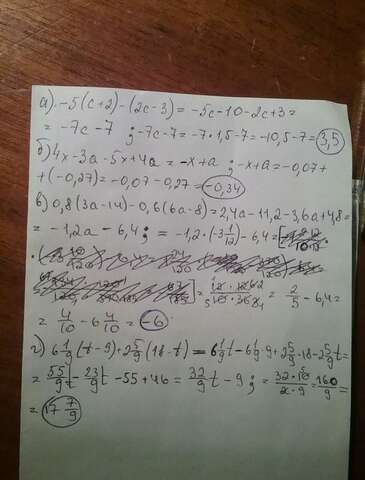 а). -5(c+2)-(2c-3) = -5c-10-2c+3=
= -7c-7 ; -7c-7= -7·1,5-7= -10,5-7= 3,5
б) 4x-3a-5x+4a = -x+a ; -x+a= -0,07+
+(-0,27)= -0,07-0,27= -0,34
в) 0,8(3a-14)-0,6(6a-8)= 2,4a-11,2-3,6a+4,8=
= -1,2a-6,4 ; = -1,2·(-3 1/12)-6,4=
= 2/5 - 6,4=
= 4/10 - 6 4/10 = -6
г) 6 1/9 (t-9)+2 5/9 (18-t) = 6 1/9 t - 6 1/9·9+2 5/9·18-2 5/9 t=
= 55/9 t - 23/9 t - 55+46= 32/9 t - 9 ; = 160/9 =
= 17 7/9